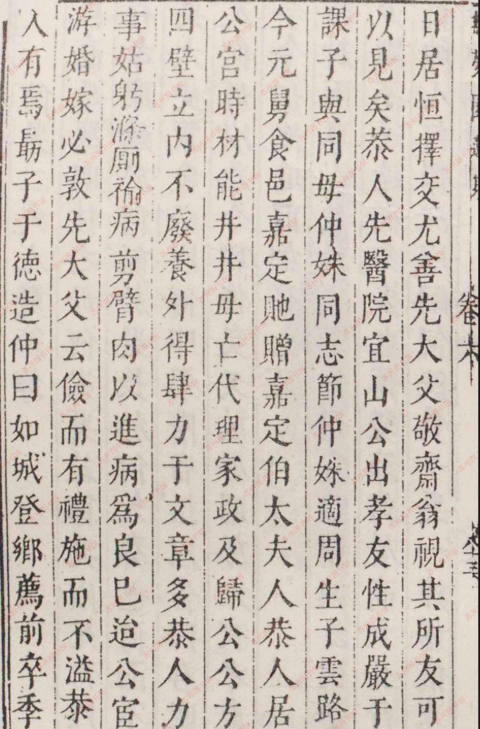 卷六
日居恒擇交尤善先大父敬齋翁視其所友可
以見矣恭人先醫院宜山公出孝友性成嚴于
課子與同母仲姝同志節仲姝適周生子雲路
今元舅食邑嘉定貤贈嘉定伯太夫人恭人居
公宮時材能井井母亡代理家政及歸公公方
四壁立内不廢養外得肆力于文章多恭人力
事姑躬滌廁牏病剪臂肉以進病爲良已迨公宦
游婚嫁必敦先大父云儉而有禮施而不溢恭
人有焉勗子于德造仲曰如城登鄉薦前卒季